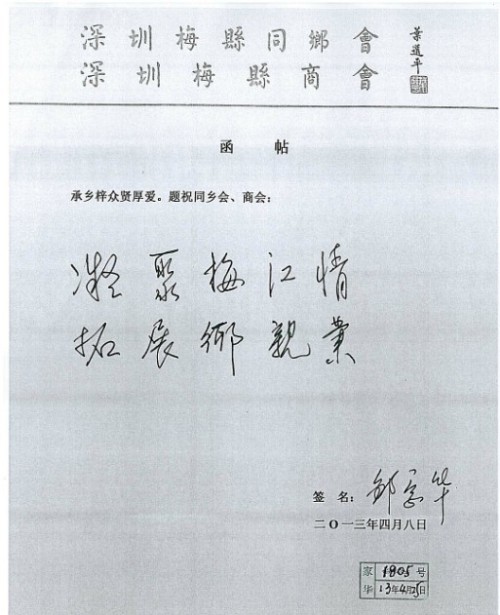 深圳梅縣同鄉會
深圳梅縣商會
葉選平
函 帖
承乡梓众贤厚爱。题祝同乡会、商会：
凝聚梅江情
拓展鄉親業
签 名：邹家华
二〇一三年四月八日
家华
1805号
13年4月25日